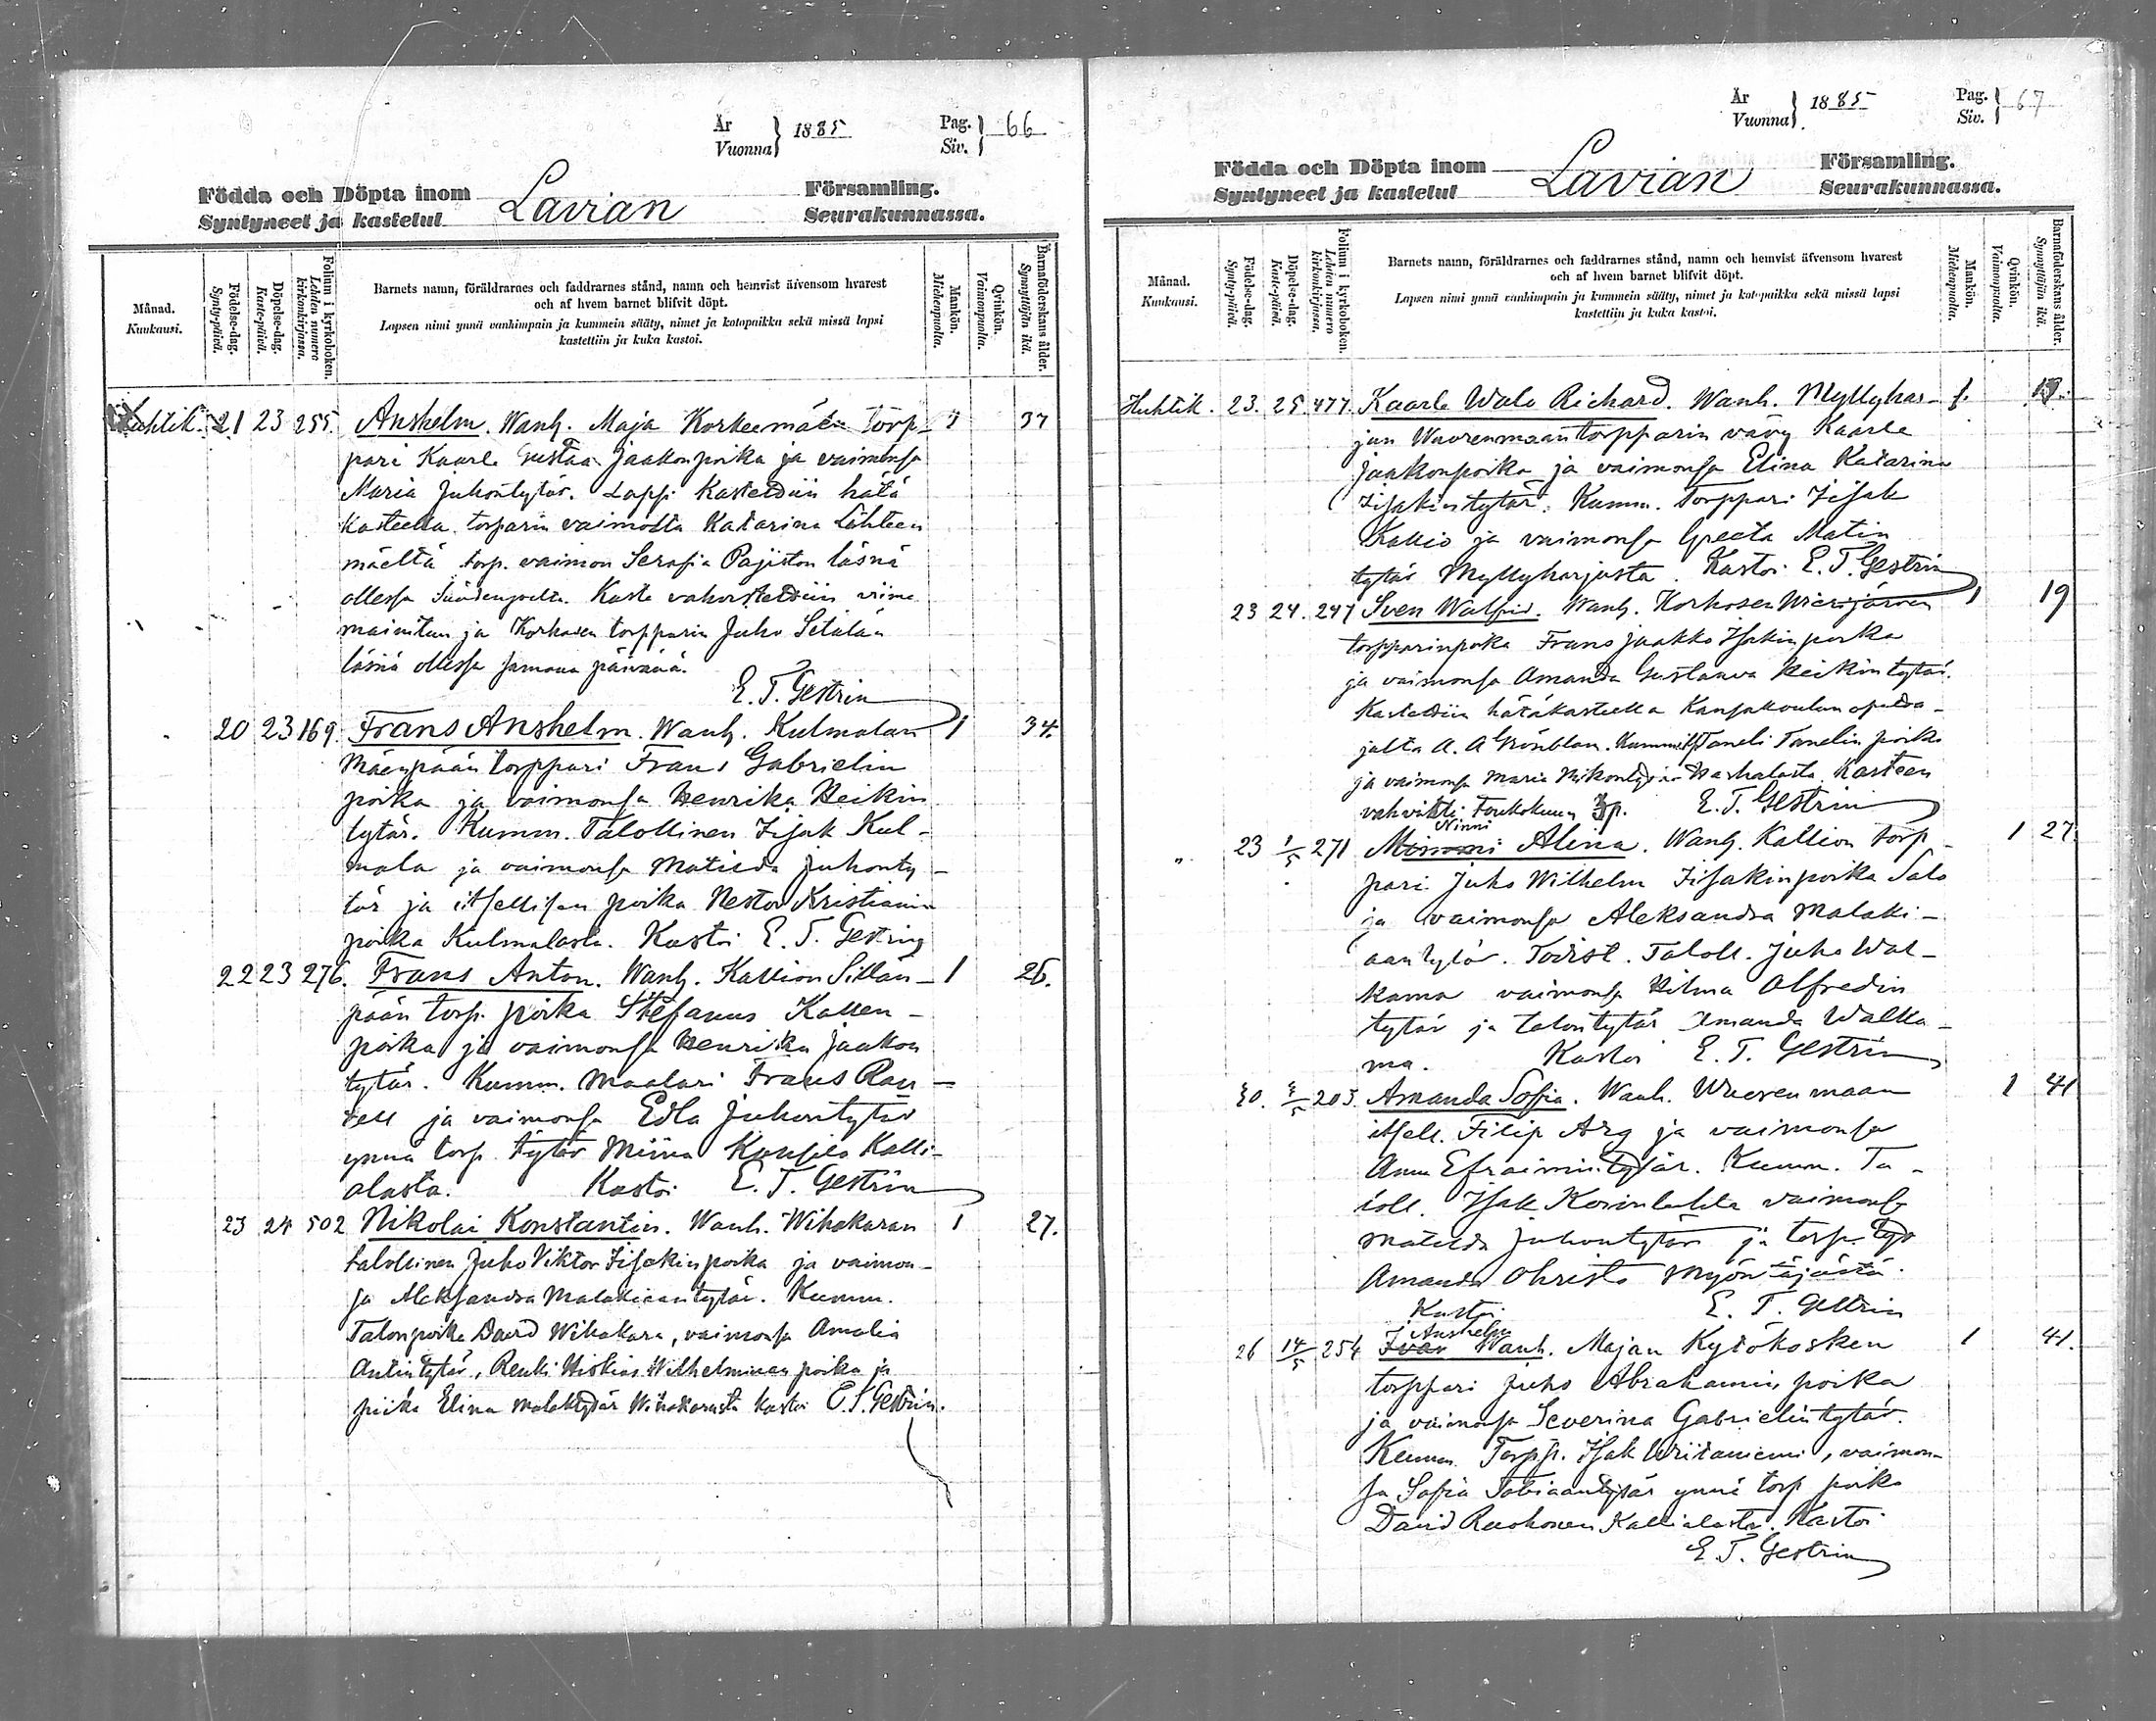 År
Vuonna } 1885
Pag.
Siv. } 66
Födda och Döpta inom Lavian Församling.
Syntyneet ja kastetut Seurakunnassa.
Månad.
Kuukausi.
Födelse-dag.
Synty-päivä.
Döpelse-dag.
Kaste-päivä.
Folium i kyrkoboken.
Lehden numero kirkonkirjassa.
Barnets namn, föräldrarnes och faddrarnes stånd, namn och hemvist äfvensom hvarest
och af hvem barnet blifvit döpt.
Lapsen nimi ynnä vanhimpain ja kummein sääty, nimet ja kotopaikka sekä missä lapsi
kastettiin ja kuka kastoi.
Mankön.
Miehenpuolia.
Qvinkön.
Vaimonpuolia.
Barnaföderskans ålder.
Synnyttäjän ikä.
Huhtik. 21 23 255. Anshelm. Wanh. Maja Korkeemäen torp- 1 37
pari Kaarle Gustaa Jaakonpoika ja vaimonsa
Maria Juhontytär. Lapsi Kastettiin hätä
kasteella torparin vaimolta Katarina Lähteen
mäeltä torp. vaimon Serafia Pajiston läsnä
ollessa Kaste vahvistettiin viime
mainitun ja Korhosen torpparin Juho Setälän
läsnä ollessa samana päivänä.
E. T. Gestrin
20 23 169. Frans Anshelm. Wanh. Kulmalan 1 34.
Mäenpään torppari Frans Gabrielin
poika ja vaimonsa Henrika Heikin
tytär. Kumm. Talollinen Iisak Kul-
mala ja vaimonsa Matilda Juhonty-
tär ja itsellisen poika Nestor Kristianin
poika Kulmalasta. Kastoi E. T. Gestrin
22 23 276. Frans Anton. Wanh. Kallion Sillän- 1 26.
pään torp. poika Stefanus Kallen-
poika ja vaimonsa Henrika Jaakon
tytär. Kumm. Maalari Frans Ran-
tell ja vaimonsa Edla Juhontytär
ynnä torp. tytär Miina Kalli-
alasta. Kastoi E. T. Gestrin
23 24 502 Nikolai Konstantin. Wanh. Wihakaran 1 27.
talollinen Juho Viktor Iisakinpoika ja vaimon-
sa Aleksandra Malakiaantytär. Kumm.
Talonpoika David Wihakara, vaimonsa Amalia
Antintytär, Renki Hiskias Wilhelminan poika ja
piika Elina Wihakarasta kastoi E. T. Gestrin.
År
Vuonna } 1885
Pag.
Siv. } 67
Födda och Döpta inom Lavian Församling.
Syntyneet ja kastetut Seurakunnassa.
Månad.
Kuukausi.
Födelse-dag.
Synty-päivä.
Döpelse-dag.
Kaste-päivä.
Folium i kyrkoboken.
Lehden numero kirkonkirjassa.
Barnets namn, föräldrarnes och faddrarnes stånd, namn och hemvist äfvensom hvarest
och af hvem barnet blifvit döpt.
Lapsen nimi ynnä vanhimpain ja kummein sääty, nimet ja kotopaikka sekä missä lapsi
kastettiin ja kuka kastoi.
Mankön.
Miehenpuolia.
Qvinkön.
Vaimonpuolia.
Barnaföderskans ålder.
Synnyttäjän ikä.
Huhtik. 23. 25. 477. Kaarle Walo Richard. Wanh. Myllyhar- 1.
jun Wuorenmaan torpparin vävy Kaarle
Jaakonpoika ja vaimonsa Elina Katarina
Iisakintytär. Kumm. Torppari Iisak
Kallio ja vaimonsa Greeta Matin
tytär Myllyharjusta. Kastoi E. T. Gestrin
23 24. 247 Sven Walfrid. Wanh. Korhosen 1 19
torpparinpoika Frans Jaakko Isakinpoika
ja vaimonsa Amanda Gustaava Heikintytär.
Kastettiin hätäkasteella Kansakoulun opetta-
jalta A. A Grönblom. Kummit Taneli Tanelin poika
ja vaimonsa Maria Kasteen
vahvisti Toukokuun 3 p. E. T. Gestrin
Ninni
" 23 1/5 271 Mimmi Alina. Wanh. Kallion torp- 1 27.
pari Juho Wilhelm Iisakinpoika Salo
ja vaimonsa Aleksandra Malaki-
aantytär. Todist. Taloll. Juho Wal-
kama vaimonsa Hilma Alfredin
tytär ja talontytär Amanda Walka-
ma. Kastoi E. T. Gestrin
205. Amanda Sofia. Wanh. Wuorenmaan 1 41
itsell. Filip Arg ja vaimonsa
Anna Efraimintytär. Kumm. Ta-
loll. Isak vaimonsa
Matilda Juhontytär ja torp. tytär
Amanda
Kastoi E. T. Gestrin
Anshelm
26 14/5 254 Ivar Wanh. Majan Kytökosken 1 41.
torppari Juho Abrahamin poika
ja vaimonsa Severina Gabrielintytär.
Kumm. Torpp. Isak Uriitaniemi, vaimon-
sa Sofia Tobiaantytär ynnä torp poika
David Ruohonen Kallialasta. Kastoi
E. T. Gestrin